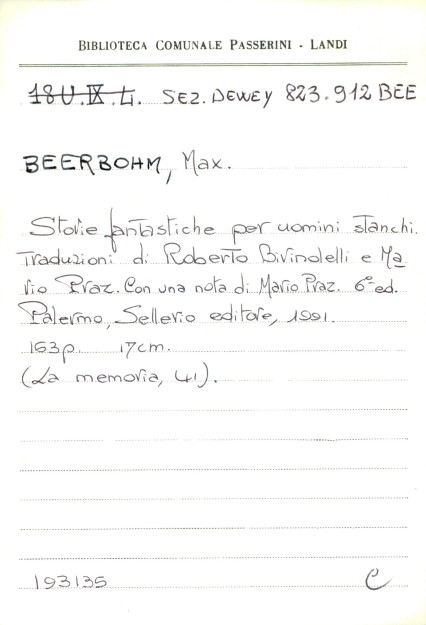 BIBLIOTECA COMUNALE PASSERINI - LANDI
18 U.IX.4. SEZ. DEWEY 823.912 BEE
BEERBOHM, Max.
Storie fantastiche per uomini stanchi.
Traduzioni di Roberto Birindelli e Ma
rio Praz. Con una nota di Mario Praz. 6ª ed.
Palermo, Sellerio editore, 1991.
163p. 17cm.
(La memoria, 41).
193135 C